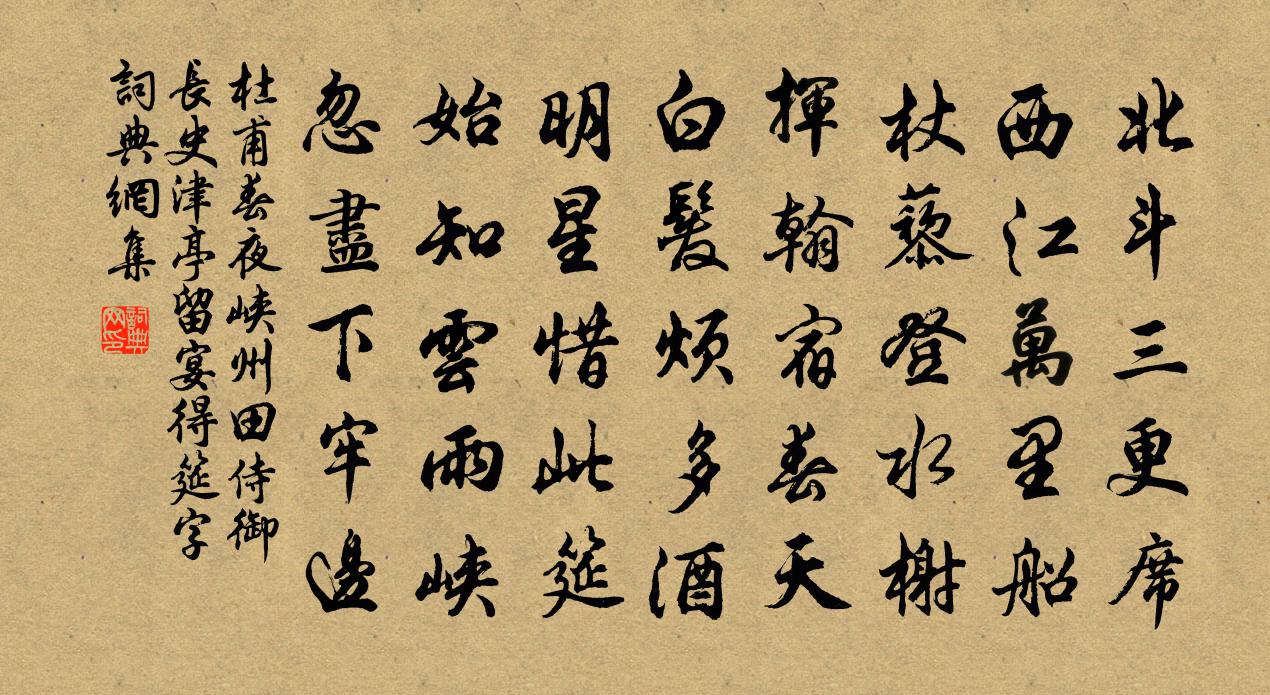 北斗三更席
西江萬里船
杖藜登水榭
揮翰宿春天
白髮煩多酒
明星惜此筵
始知雲雨峽
忽盡下牢邊
杜甫春夜峽州田侍御
長史津亭留宴得筵字
詞典網集
詞典网印